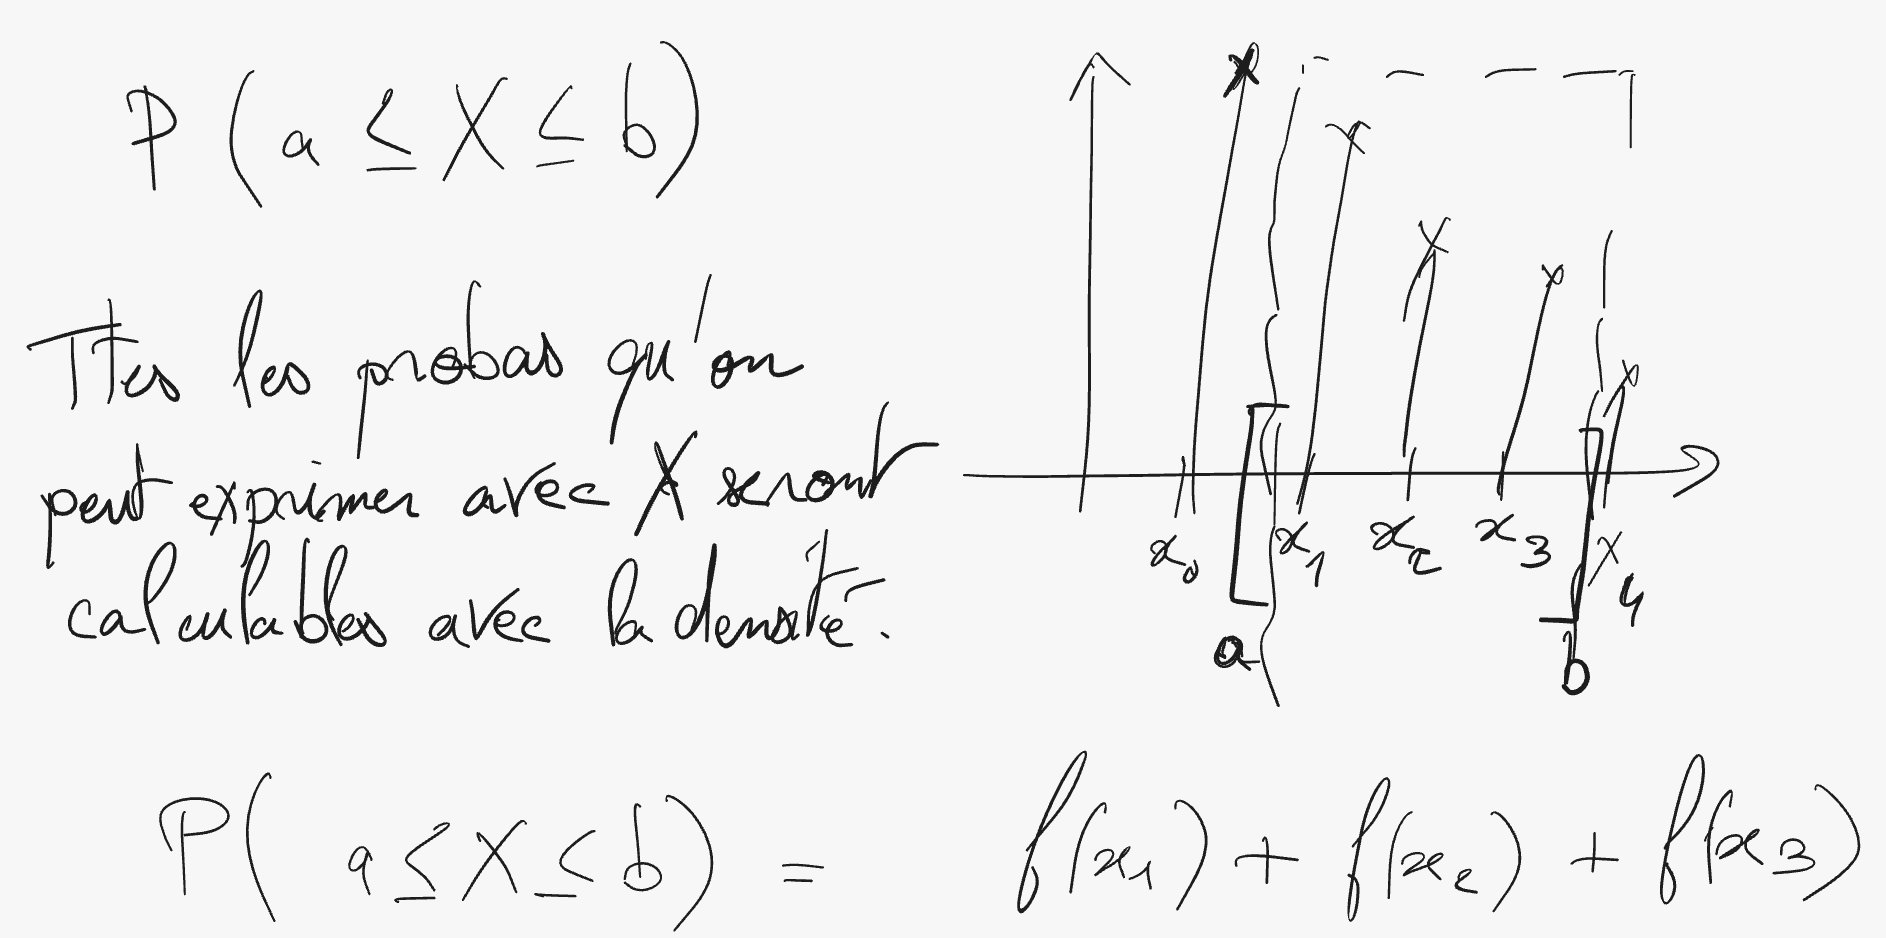 P(a ≤ X ≤ b)
Ttes les probas qu'on
peut exprimer avec X seront
calculables avec la densité.
x₀ x₁ x₂ x₃ x₄
a b
P(a ≤ X ≤ b) = f(x₁) + f(x₂) + f(x₃)